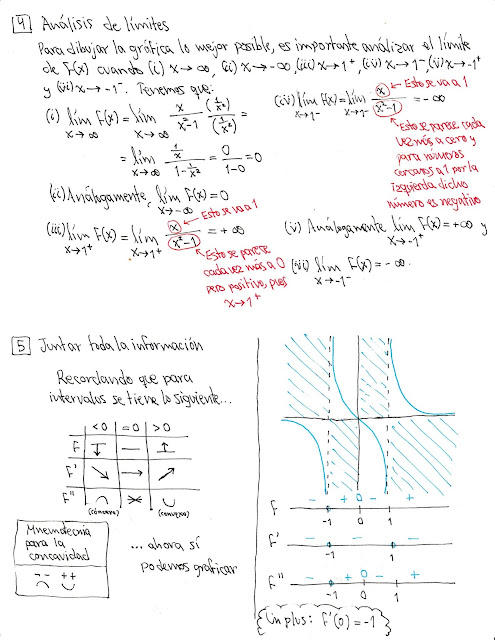 4 Análisis de límites
Para dibujar la gráfica lo mejor posible, es importante análizar el límite
de F(x) cuando (i) x→∞, (ii) x→-∞, (iii) x→1⁺, (iv) x→1⁻, (v) x→-1⁺
y (vi) x→-1⁻. Tenemos que:
(i) lím x→∞ F(x) = lím x→∞ x/(x²-1) (1/x²)/(1/x²) =
= lím x→∞ (1/x)/(1-1/x²) = 0/(1-0) = 0
(ii) Análogamente, lím x→-∞ F(x) = 0
(iii) lím x→1⁺ F(x) = lím x→1⁺ x/(x²-1) = +∞
Esto se va a 1
Esto se parece
cada vez más a 0
pero positivo, pues
x→1⁺
(iv) lím x→1⁻ F(x) = lím x→1⁻ x/(x²-1) = -∞
Esto se va a 1
Esto se parece cada
vez más a cero y
para números
cercanos a 1 por la
izquierda dicho
número es negativo
(v) Análogamente lím x→-1⁺ F(x) = +∞ y
(vi) lím x→-1⁻ F(x) = -∞.
5 Juntar toda la información
Recordando que para
intervalos se tiene lo siguiente...
<0 =0 >0
F
F'
F''
(cóncava) (convexa)
Mnemotecnia
para la
concavidad
-- ++
... ahora sí
podemos graficar
F - + 0 - +
-1 0 1
F' - - -
-1 1
F'' - + 0 - +
-1 0 1
Un plus: F'(0) = -1